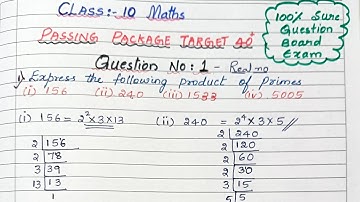 CLASS:- 10 Maths
PASSING PACKAGE TARGET 40+
100% Sure
Question
Board
Exam
Question No: 1 -
1) Express the following product of Primes
(i) 156 (ii) 240 (iii) 1533 (iv) 5005
(i) 156 = 2²×3×13 (ii) 240 = 2⁴×3×5
2 156
2 78
3 39
13 13
1
2 240
2 120
2 60
2 30
3 15
5 5